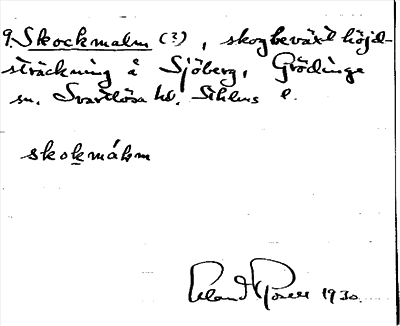 9. Skockmalm (3), skogbeväxt höjd-
sträckning å Sjöberg, Grödinge
sn. Svartlösa hd. Sthlms l.
skokmáhm
1930.